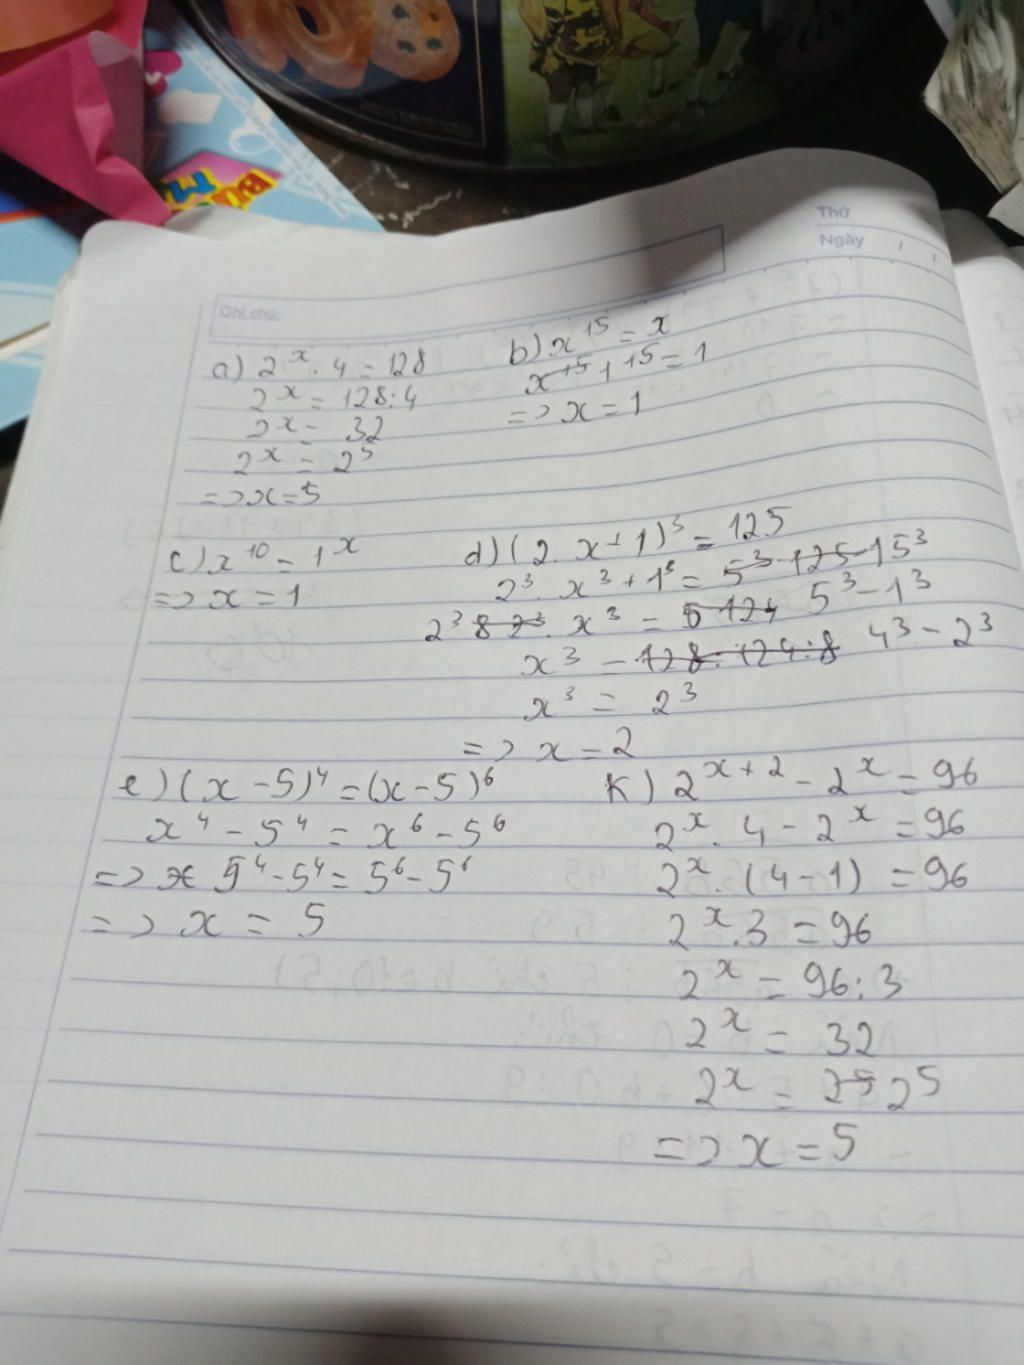 Thứ
Ngày
Ghi chú:
a) 2^x . 4 = 128
2^x = 128 : 4
2^x = 32
2^x = 2^5
=> x = 5
b) x^15 = x
=> x = 1
c) x^10 = 1^x
=> x = 1
d) (2. x + 1)^3 = 125
2^3 . x^3 + 1^3 = 5^3 125 15^3
2^3 8 2^3 . x^3 = 5 124 5^3 - 1^3
x^3 = 128 : 124 : 8 4^3 - 2^3
x^3 = 2^3
=> x = 2
e) (x - 5)^4 = (x - 5)^6
x^4 - 5^4 = x^6 - 5^6
=> x 5^4 - 5^4 = 5^6 - 5^6
=> x = 5
K) 2^x+2 - 2^x = 96
2^x . 4 - 2^x = 96
2^x . (4 - 1) = 96
2^x . 3 = 96
2^x = 96 : 3
2^x = 32
2^x = 25 2^5
=> x = 5